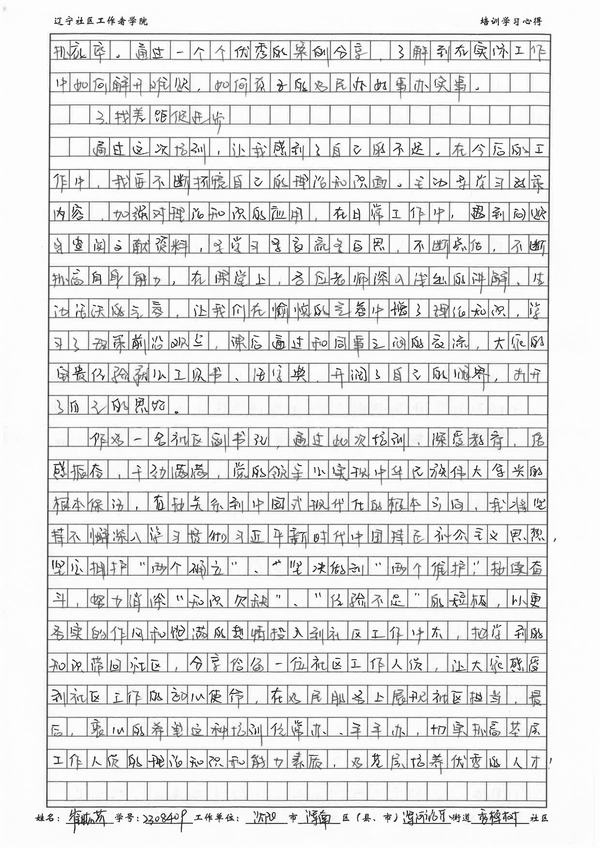 辽宁社区工作者学院 培训学习心得
抓效率。通过一个个优秀的案例分享，了解到在实际工作
中如何解开难题，如何真正的为民办好事办实事。
3 找差距促进步
通过这次培训，让我感到了自己的不足。在今后的工
作中，我要不断拓宽自己的理论知识面。主动学习政策
内容，加强对理论知识的应用，在日常工作中，遇到问题
多查阅文献资料，多学习多交流多反思，不断总结，不断
抓高自身能力，在课堂上，各位老师深入浅出的讲解、生
动活泼的主意，让我们在愉快的主意中增了理论知识，学
习了政策前沿观点，课后通过和同事之间的交流，大家的
宝贵经验就以工具书、活字典，开阔了自己的眼界，打开
了自己的思路。
作为一名社区副书记，通过此次培训、深受教育，倍
感振奋，干劲满满，党的领导以实现中华民族伟大复兴的
根本保证，直接关系到中国式现代化的根本方向，我将坚
持不懈深入学习贯彻习近平新时代中国特色社会主义思想，
坚定拥护“两个确立”、“坚决做到“两个维护”持续奋
斗，努力消除“知识欠缺”、“经验不足”的短板，以更
务实的作风和饱满的热情投入到社区工作中去，把学到的
知识带回社区，分享给每一位社区工作人员，让大家感受
到社区工作的初心使命，在为民服务上展现社区担当，最
后，衷心的希望这种培训经常办、年年办，切实抓高基层
工作人员的理论知识和能力素质，为基层培养优秀的人才！
姓名： 学号：2308409 工作单位：沈阳 市 浑南 区（县、市） 街道 社区